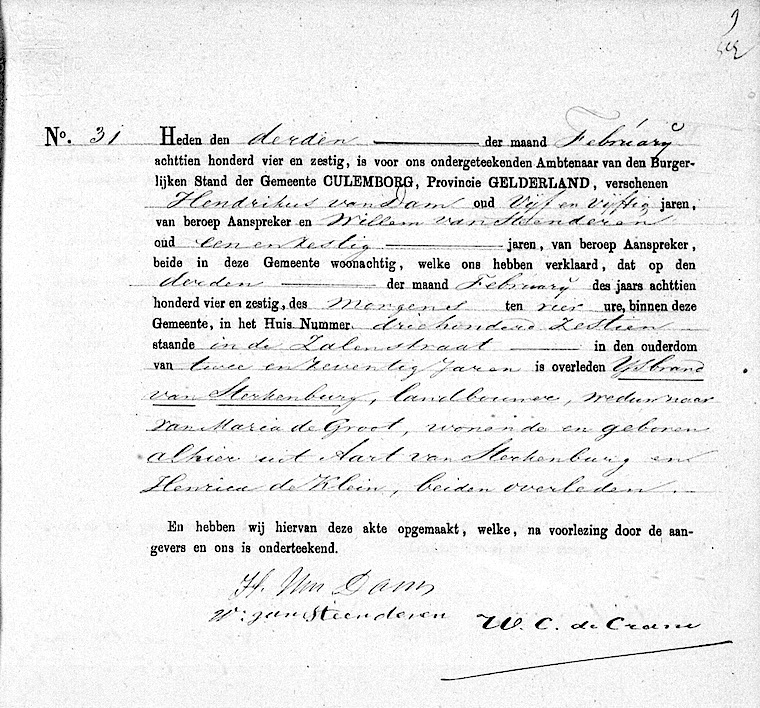 No. 31 Heden den derden der maand February
achttien honderd vier en zestig, is voor ons ondergeteekenden Ambtenaar van den Burger-
lijken Stand der Gemeente CULEMBORG, Provincie GELDERLAND, verschenen
Hendrikus van Dam oud Vijf en Vijftig jaren,
van beroep Aanspreker en Willem van Steenderen
oud een en zestig jaren, van beroep Aanspreker,
beide in deze Gemeente woonachtig, welke ons hebben verklaard, dat op den
derden der maand February des jaars achttien
honderd vier en zestig, des Morgens ten vier ure, binnen deze
Gemeente, in het Huis Nummer driehonderd Zestien
staande in de Zalenstraat in den ouderdom
van twee en zeventig Jaren is overleden Ysbrand
van Sterkenburg, landbouwer, weduwnaar
van Maria de Groot, wonende en geboren
alhier uit Aart van Sterkenburg en
Henrica de Klein, beiden overleden.
En hebben wij hiervan deze akte opgemaakt, welke, na voorlezing door de aan-
gevers en ons is onderteekend.
H. Van Dam
W. van Steenderen
W. C. de Crane